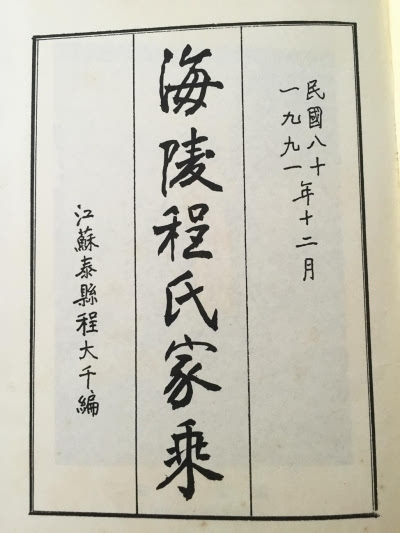 民國八十年十二月
一九九一
海陵程氏家乘
江蘇泰縣程大千編